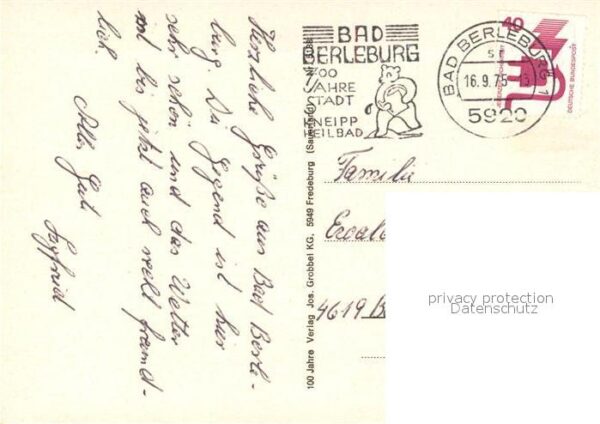 Herzliche Grüße aus Bad Berle-
burg. Die Gegend ist hier
sehr schön und das Wetter
ist bis jetzt auch recht freund-
lich.
Alles Gute
Siegfried
BAD
BERLEBURG
700
JAHRE
STADT
KNEIPP
HEILBAD
BAD BERLEBURG 1
16.9.75-13
5920
40
DEUTSCHE BUNDESPOST
100 Jahre Verlag Jos. Grobbel KG, 5949 Fredeburg (Sauerland)
Familie
4619 B
privacy protection
Datenschutz